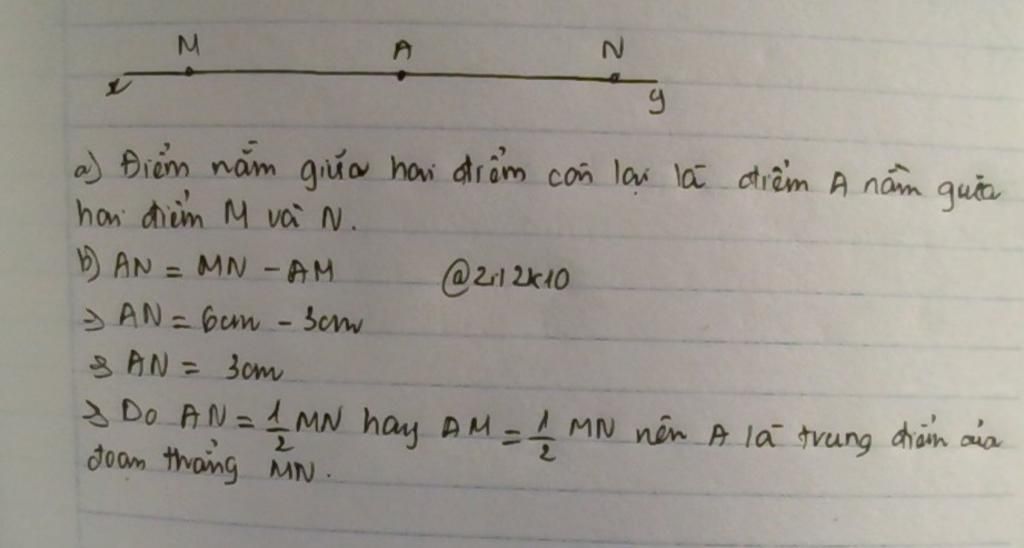 M A N
x y
a) Điểm nằm giữa hai điểm còn lại là điểm A nằm giữa
hai điểm M và N.
b) AN = MN - AM @2.12k10
=> AN = 6cm - 3cm
=> AN = 3cm
=> Do AN = 1/2 MN hay AM = 1/2 MN nên A là trung điểm của
đoạn thẳng MN.